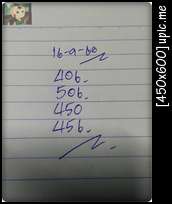 16-9-60
406.
506.
450
456.
[450x600] upic.me